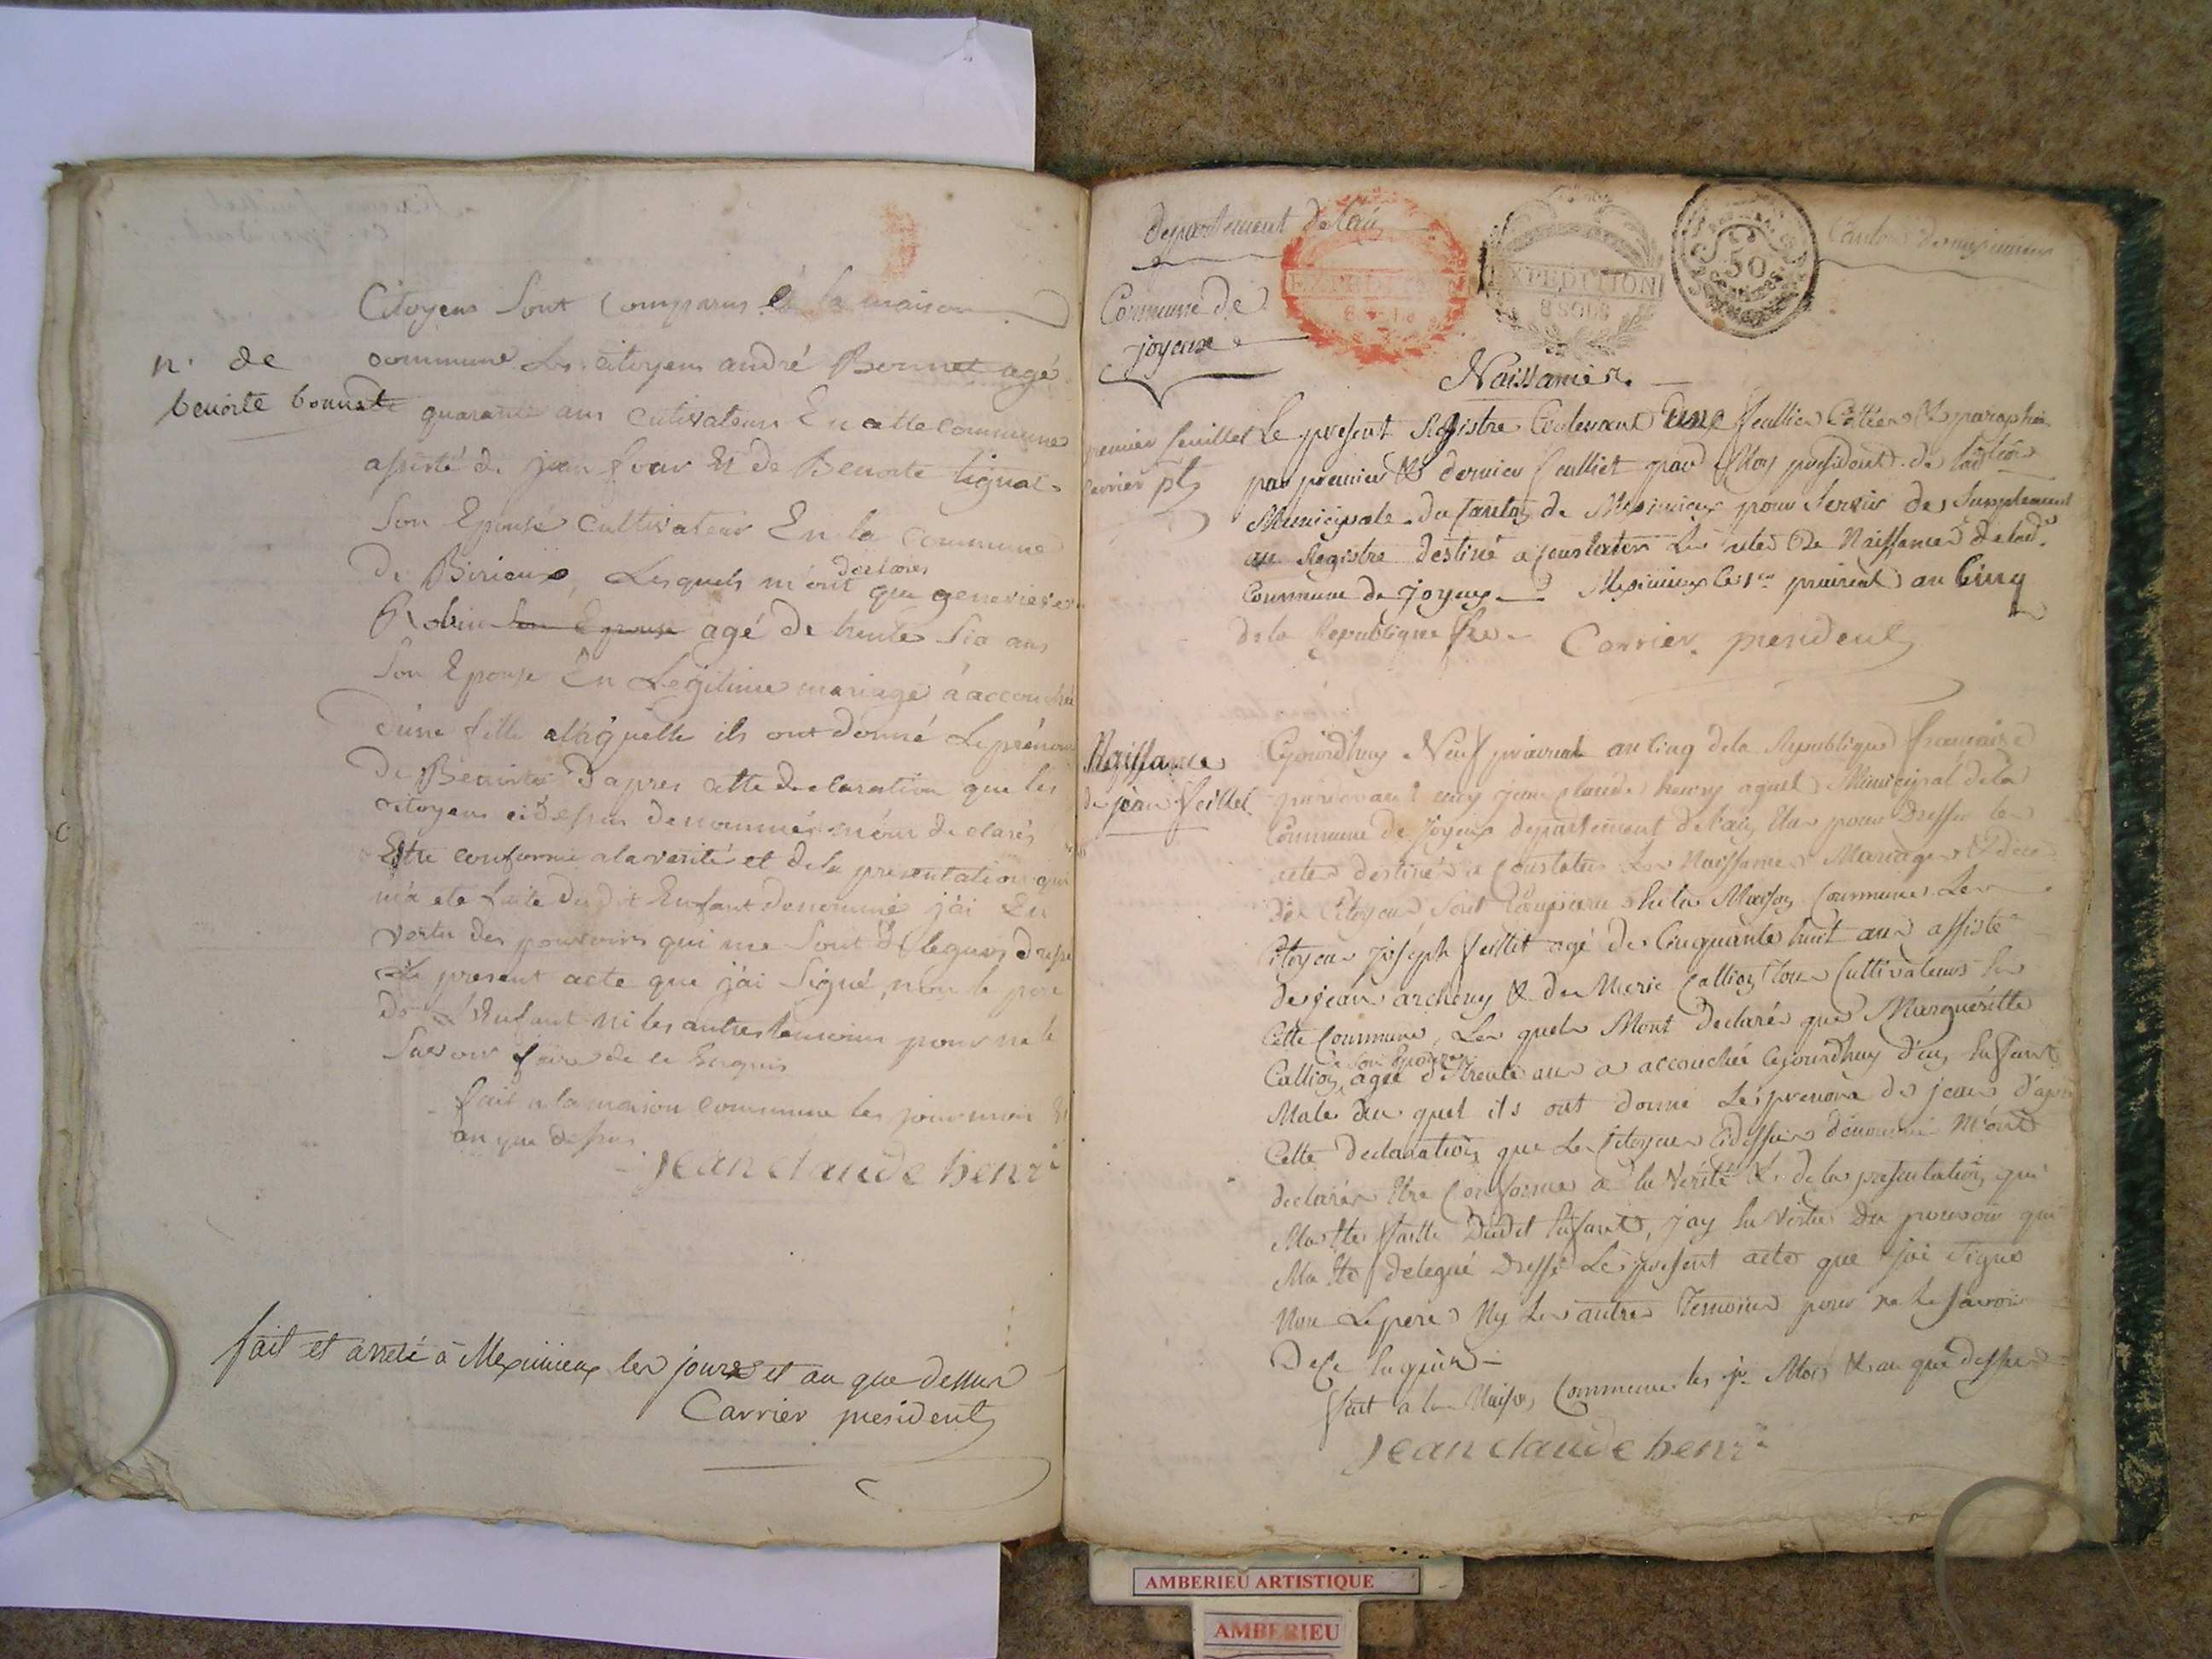 Citoyens sont comparus à la maison
n. de
benoite bonnette
commune les citoyens andré Bonnet agé
quarante ans cultivateur En cette commune
assisté de jean four Et de Benoite
Son Epouse cultivateur En la commune
De Birieux, Lesquels m'ont declarés que genevieve
Robin son Epouse agé de trente Six ans
Son Epouse En Legitime mariage à accouchée
d'une fille alaquelle ils ont donné Le prénom
De Benoite D'apres cette declaration que les
citoyens cidessus denommés m'ont declarés
Estre conforme alaverité et dela presentation qui
m'a ete faite dudit Enfant denommé j'ai En
vertu des pouvoirs qui me Sont delegués dressé
le present acte que j'ai Signé, non le pere
de l'Enfant ni les autres temoins pour ne le
Savoir faire de ce Enquis
fait a la maison commune les jour mois Et
an que dessus
jean claude henri
fait et arreté à Meximieux les jours et an que dessus
Carrier president
departement de lain
Canton de meximieux
Commune de
joyeux
EXPEDITION
EXPEDITION
8 SOUS
50
CENTIMES
Naissances.
premier feuillet
Carrier pt
Le present Registre Contenant feuillets Cottés & paraphés
par premier & dernier feuillet par Moy president de l'ad.on
Municipale du Canton de Meximieux pour Servir de Supplement
au Registre destiné a constater les actes De Naissances de lad.
Commune de Joyeux Meximieux le 1er prairial an Cinq
de la Republique fse
Carrier president
Naissance
de jean feillet
Cejourdhuy Neuf prairial an cinq dela Republique francaise
pardevant moy jean claude henry agent Municipal dela
Commune de Joyeux departement de lain Elu pour Dresser les
actes destinés a Constater les Naissances Mariages & deces
des Citoyens sont Comparu En la Maison Commune Le
Citoyen Joseph feillet agé de Cinquante huit ans assisté
de jean archeny & de Marie Callioz tous Cultivateurs En
Cette Commune, Les quels Mont Declarés que Marguerite
Callioz son Epouse agée de trente ans a accouchée Cejourdhuy d'un Enfant
Male au quel ils ont donné Le prenom de jean d'apres
Cette declaration que les Citoyens Cidessus denommés M'ont
declarés Etre Conforme a la Verité & de la presentation qui
Ma ete faitte Dudit Enfant, jay En Vertu Du pouvoir qui
Ma ete delegué Dressé Le present acte que jai signé
Non Le pere Ny Les autres Temoins pour ne le Savoir
De ce Enquis
fait a la Maison Commune les jr. Mois & an que dessus
jean claude henri
AMBERIEU ARTISTIQUE
AMBERIEU